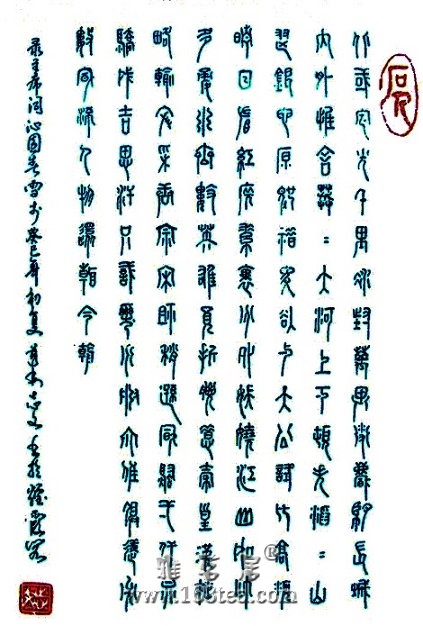 北國風光千里冰封萬里雪飄望長城
內外惟余莽=大河上下頓失滔=山
舞銀蛇原馳蠟象欲與天公試比高須
晴日看紅裝素裹分外妖嬈江山如此
多嬌引無數英雄競折腰惜秦皇漢武
略輸文采唐宗宋祖稍遜風騷一代天
驕成吉思汗只識彎弓射大雕俱往矣
數風流人物還看今朝
录主席词沁园春雪於癸巳年初夏
雅茗居®
www.163tea.com